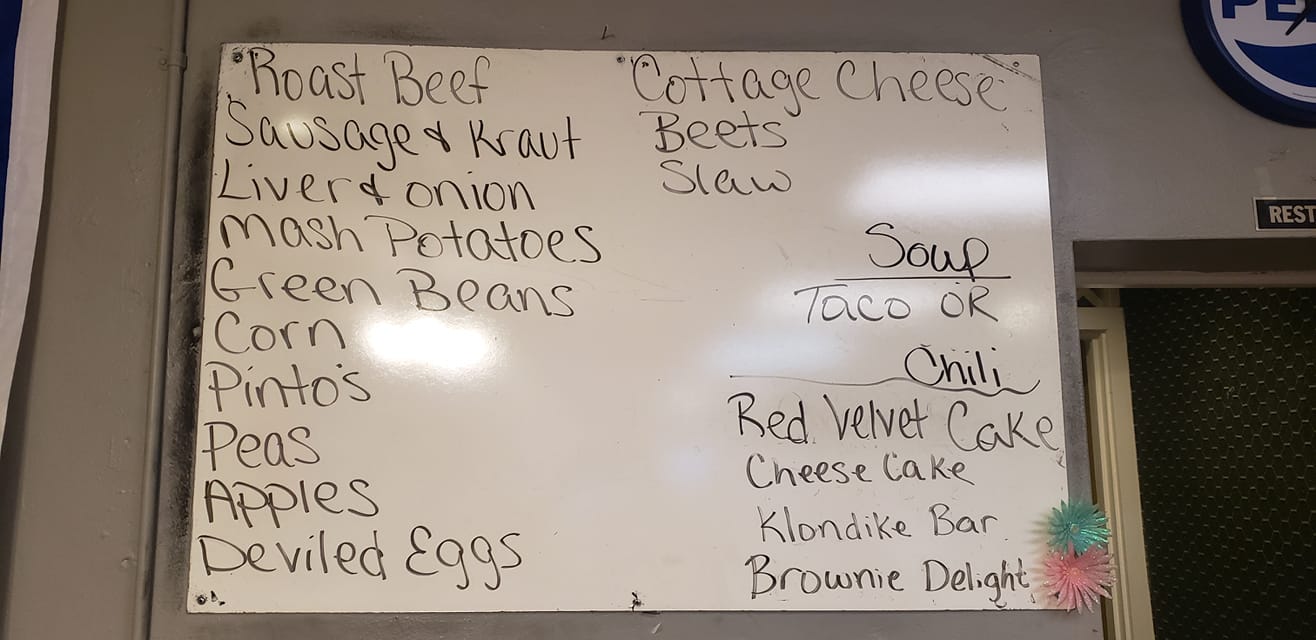 Roast Beef
Sausage & Kraut
Liver & onion
Mash Potatoes
Green Beans
Corn
Pinto's
Peas
Apples
Deviled Eggs
Cottage Cheese
Beets
Slaw
Soup
Taco OR
Chili
Red Velvet Cake
Cheese Cake
Klondike Bar
Brownie Delight
REST